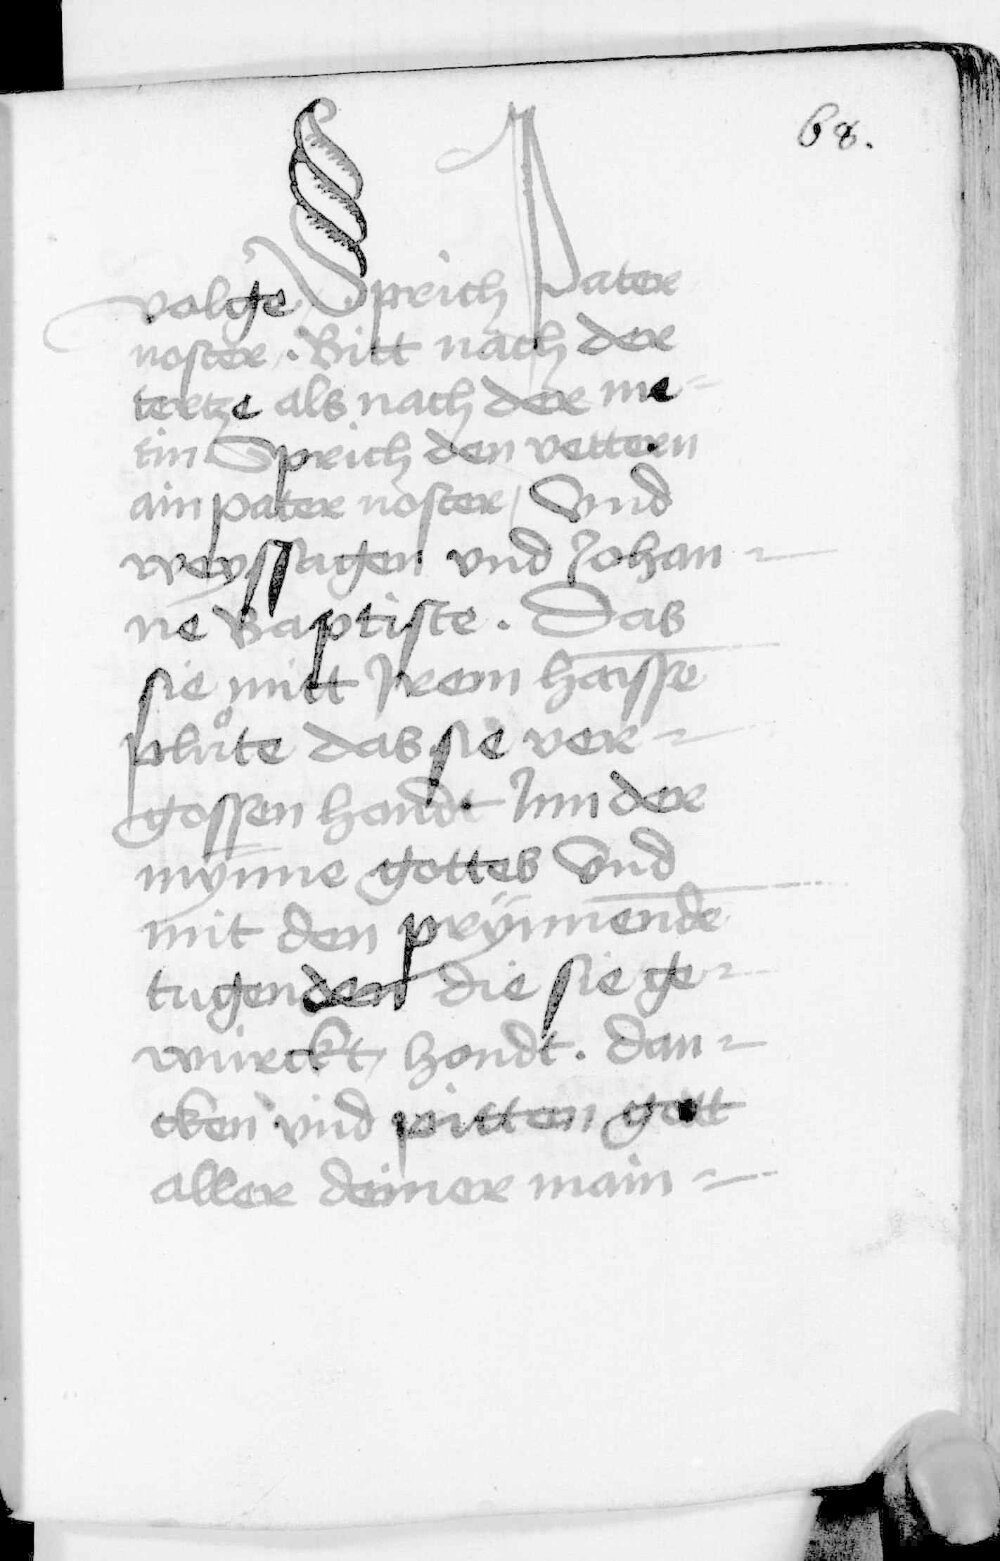 68.
volge Sprich Pater
noster. Bitt nach der
tertze als nach der me-
tin Sprich den vettern
ain pater noster / Vnd
weyssagen vnd Johan-
ne Baptiste. Das
sie mitt Jrem haisse
plůte das sie ver-
gossen hondt Jnn der
mynne gottes Vnd
mit den prÿnnende
tugenden die sie ge-
würckt hondt. dan-
cken vnd pitten gott
aller deiner main-